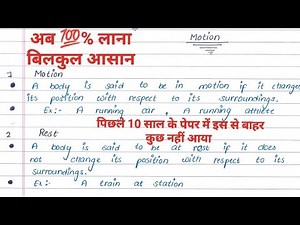 अब 💯% लाना
बिलकुल आसान
Motion
1 Motion
A body is said to be in motion if it changes
its position with respect to its surroundings.
Ex:- A running car , A running athlete
पिछले 10 साल के पेपर में इस से बाहर
कुछ नहीं आया
2 Rest
A body is said to be at rest if it does
not change its position with respect to its
surroundings.
Ex:- A train at station